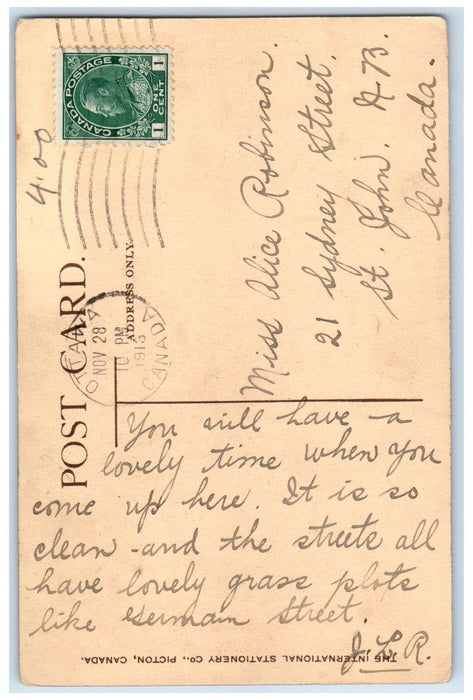 CANADA POSTAGE
1 ONE CENT 1
4.00
OTTAWA
NOV 28
10 PM
1913
CANADA
POST CARD.
ADDRESS ONLY.
Miss Alice Robinson.
21 Sydney Street.
St. John. N.B.
Canada.
You will have a
lovely time when you
come up here. It is so
clean - and the streets all
have lovely grass plots
like Germain Street.
J. L. R.
THE INTERNATIONAL STATIONERY CO., PICTON, CANADA.